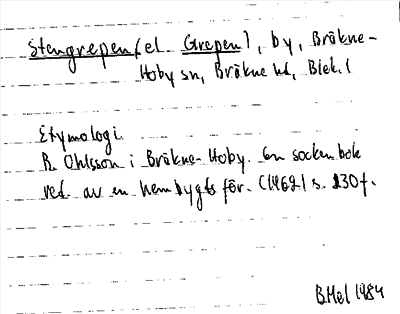 Stengrepen (el. Grepen), by, Bräkne-
Hoby sn, Bräkne hd, Blek. l
Etymologi
R. Ohlsson i Bräkne-Hoby. En sockenbok
red. av en hembygdsför. (1962) s. 230 f.
B Mel 1984